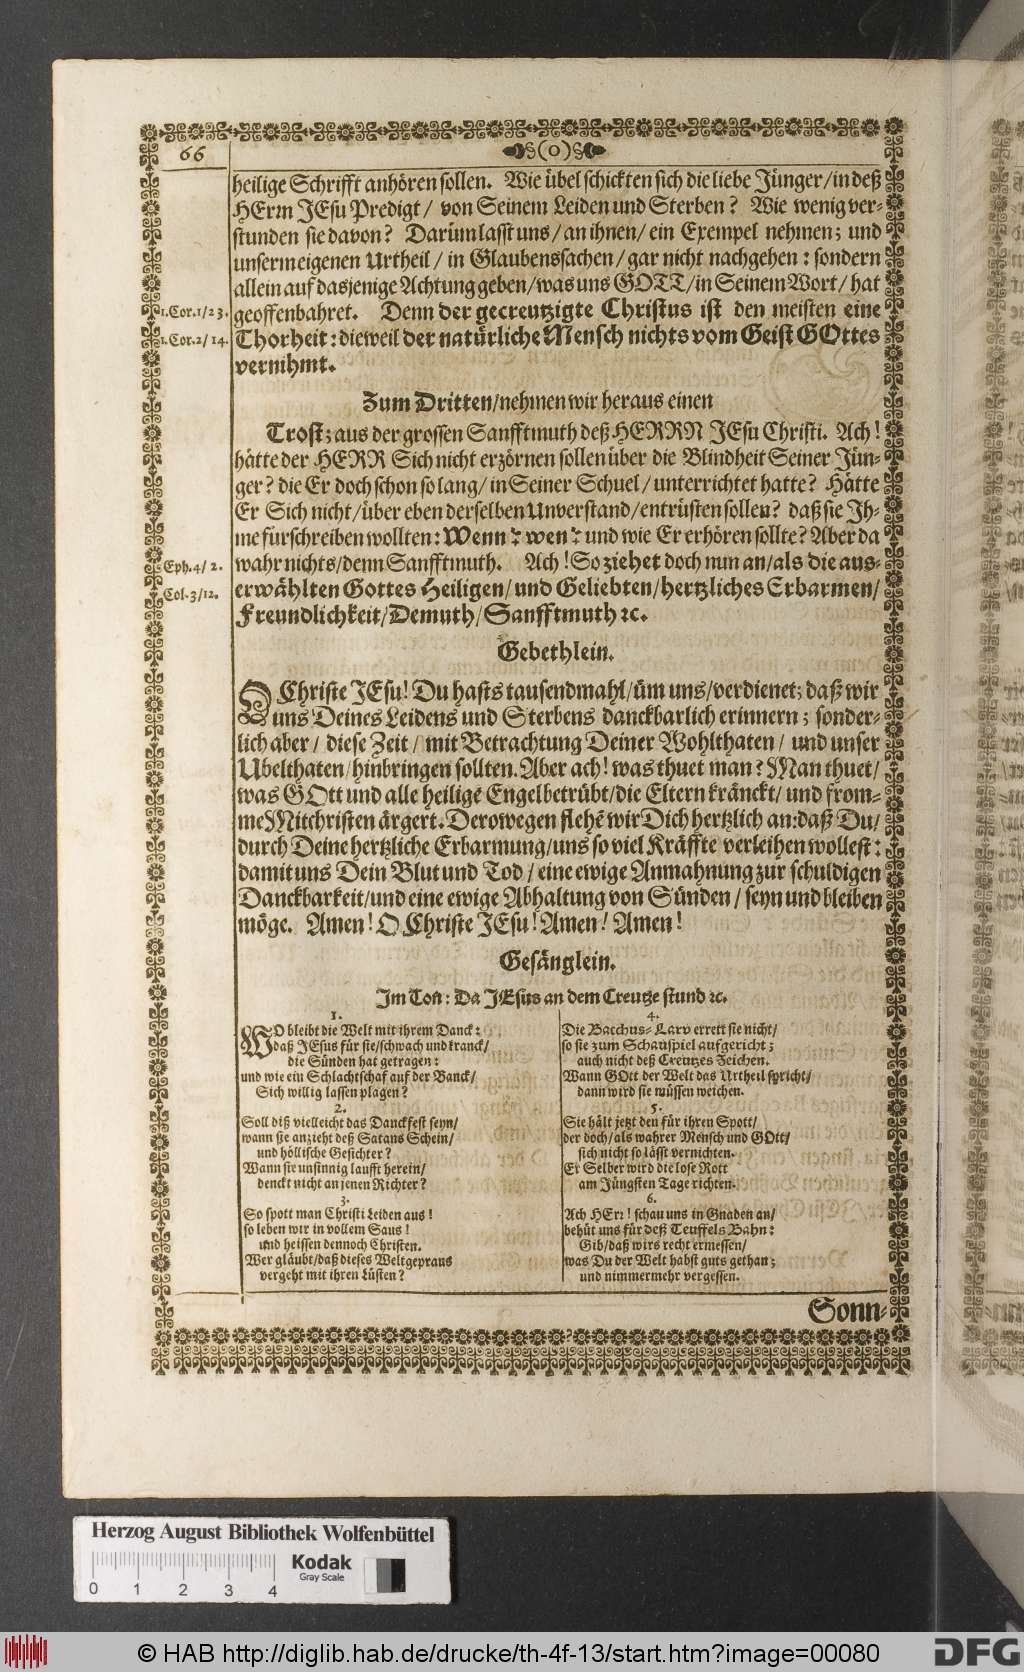 66
(o)
heilige Schrifft anhören sollen. Wie übel schickten sich die liebe Jünger/in deß
HErrn JEsu Predigt/ von Seinem Leiden und Sterben? Wie wenig ver-
stunden sie davon? Darüm lasst uns/an ihnen/ein Exempel nehmen; und
unserm eigenen Urtheil/ in Glaubenssachen/gar nicht nachgehen: sondern
allein auf dasjenige Achtung geben/was uns GOTT/in Seinem Wort/hat
1.Cor.1/23.
geoffenbahret. Denn der gecreutzigte Christus ist den meisten eine
1.Cor.2/14.
Thorheit: dieweil der natürliche Mensch nichts vom Geist GOttes
vernihmt.
Zum Dritten/nehmen wir heraus einen
Trost; aus der grossen Sanfftmuth deß HERRN JEsu Christi. Ach!
hätte der HERR Sich nicht erzörnen sollen über die Blindheit Seiner Jün-
ger? die Er doch schon so lang/in Seiner Schuel/unterrichtet hatte? Hätte
Er Sich nicht/über eben derselben Unverstand/entrüsten sollen? daß sie Jh-
me fürschreiben wollten: Wenn? wen? und wie Er erhören sollte? Aber da
Eph.4/2.
wahr nichts/denn Sanfftmuth. Ach! So ziehet doch nun an/als die aus-
Col.3/12.
erwählten Gottes Heiligen/und Geliebten/hertzliches Erbarmen/
Freundlichkeit/Demuth/Sanfftmuth ꝛc.
Gebethlein.
O Christe JEsu! Du hasts tausendmahl/üm uns/verdienet; daß wir
uns Deines Leidens und Sterbens danckbarlich erinnern; sonder-
lich aber/ diese Zeit/ mit Betrachtung Deiner Wohlthaten/ und unser
Ubelthaten/hinbringen sollten. Aber ach! was thuet man? Man thuet/
was GOtt und alle heilige Engel betrübt/die Eltern kränckt/und from-
me Mitchristen ärgert. Derowegen flehẽ wir Dich hertzlich an: daß Du/
durch Deine hertzliche Erbarmung/uns so viel Kräffte verleihen wollest:
damit uns Dein Blut und Tod/eine ewige Anmahnung zur schuldigen
Danckbarkeit/und eine ewige Abhaltung von Sünden/seyn und bleiben
möge. Amen! O Christe JEsu! Amen! Amen!
Gesänglein.
Jm Ton: Da JEsus an dem Creutze stund ꝛc.
1.
WO bleibt die Welt mit ihrem Danck:
daß JEsus für sie/schwach und kranck/
die Sünden hat getragen:
und wie ein Schlachtschaf auf der Banck/
Sich willig lassen plagen?
2.
Soll diß vielleicht das Danckfest seyn/
wann sie anzieht deß Satans Schein/
und höllische Gesichter?
Wann sie unsinnig laufft herein/
denckt nicht an jenen Richter?
3.
So spott man Christi Leiden aus!
so leben wir in vollem Saus!
und heissen dennoch Christen.
Wer gläubt/daß dieses Weltgepraus
vergeht mit ihren Lüsten?
4.
Die Bacchus-Larv errett sie nicht/
so sie zum Schauspiel aufgericht;
auch nicht deß Creutzes Zeichen.
Wann GOtt der Welt das Urtheil spricht/
dann wird sie müssen weichen.
5.
Sie hält jetzt den für ihren Spott/
der doch/als wahrer Mensch und GOtt/
sich nicht so lässt vernichten.
Er Selber wird die lose Rott
am Jüngsten Tage richten.
6.
Ach HErr! schau uns in Gnaden an/
behüt uns für deß Teuffels Bahn:
Gib/daß wirs recht ermessen/
was Du der Welt habst guts gethan;
und nimmermehr vergessen.
Sonn-
Herzog August Bibliothek Wolfenbüttel
Kodak
Gray Scale
0 1 2 3 4
© HAB http://diglib.hab.de/drucke/th-4f-13/start.htm?image=00080
DFG